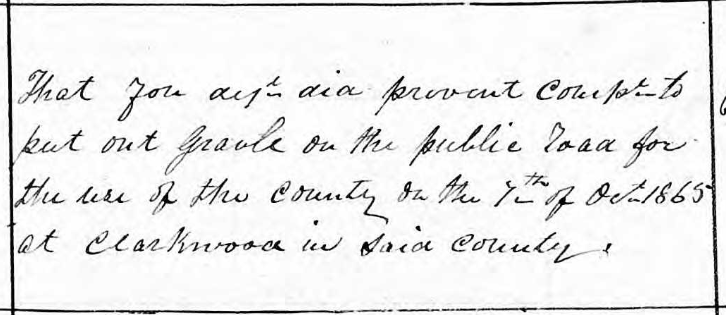 That you defn did prevent Compn to
put out Gravle on the public road for
the use of the County on the 7th of Octr 1865
at Clarkwood in Said County.